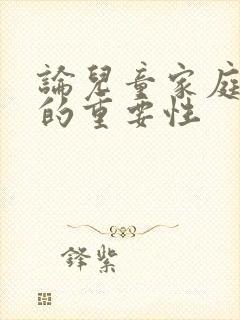 論兒童家庭
的重要性
鐸紫